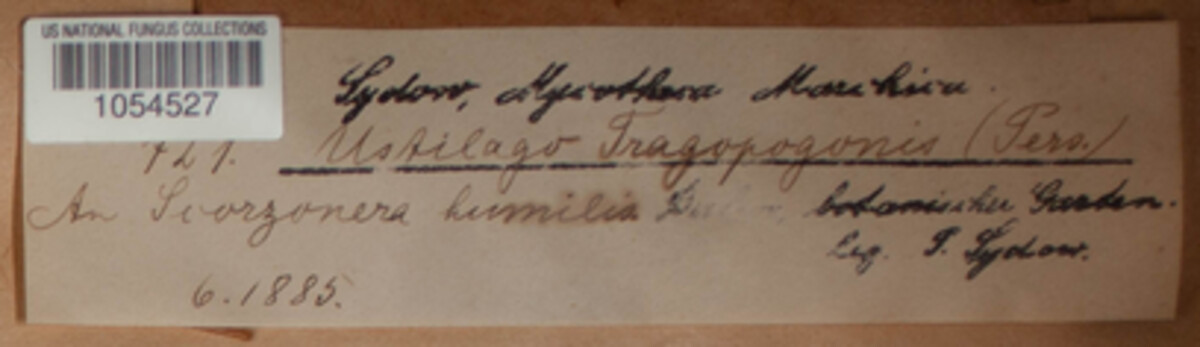 US NATIONAL FUNGUS COLLECTIONS
1054527
Sydow, Mycotheca Marchica.
721. Ustilago Tragopogonis (Pers.)
An Scorzonera humilis botanischer Garten.
leg. P. Sydow.
6.1885.